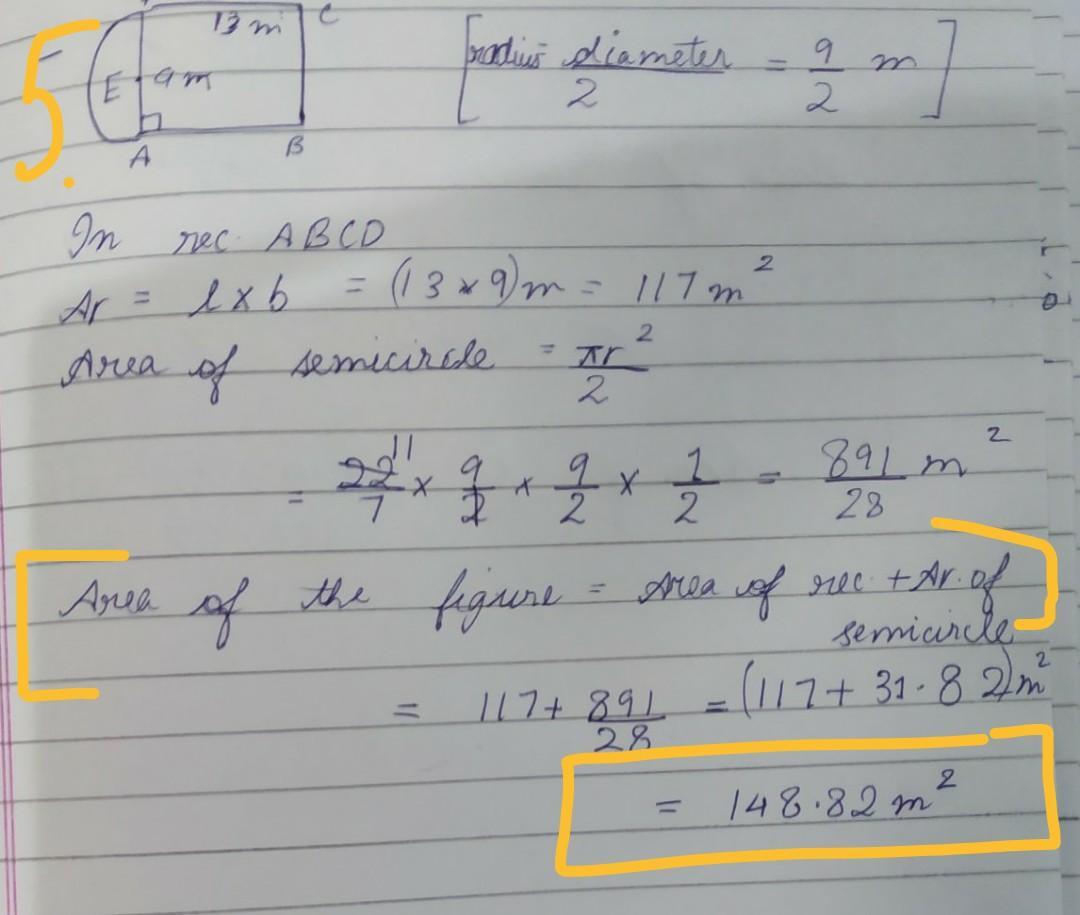 5.
13 m C
E 9 m
A B
[radius diameter/2 = 9/2 m]
In rec. ABCD
Ar = l x b = (13 x 9)m = 117 m²
Area of semicircle = πr²/2
= 22/7 11 x 9/2 x 9/2 x 1/2 = 891/28 m²
Area of the figure = Area of rec. + Ar. of
semicircle
= 117 + 891/28 = (117 + 31.82)m²
= 148.82 m²